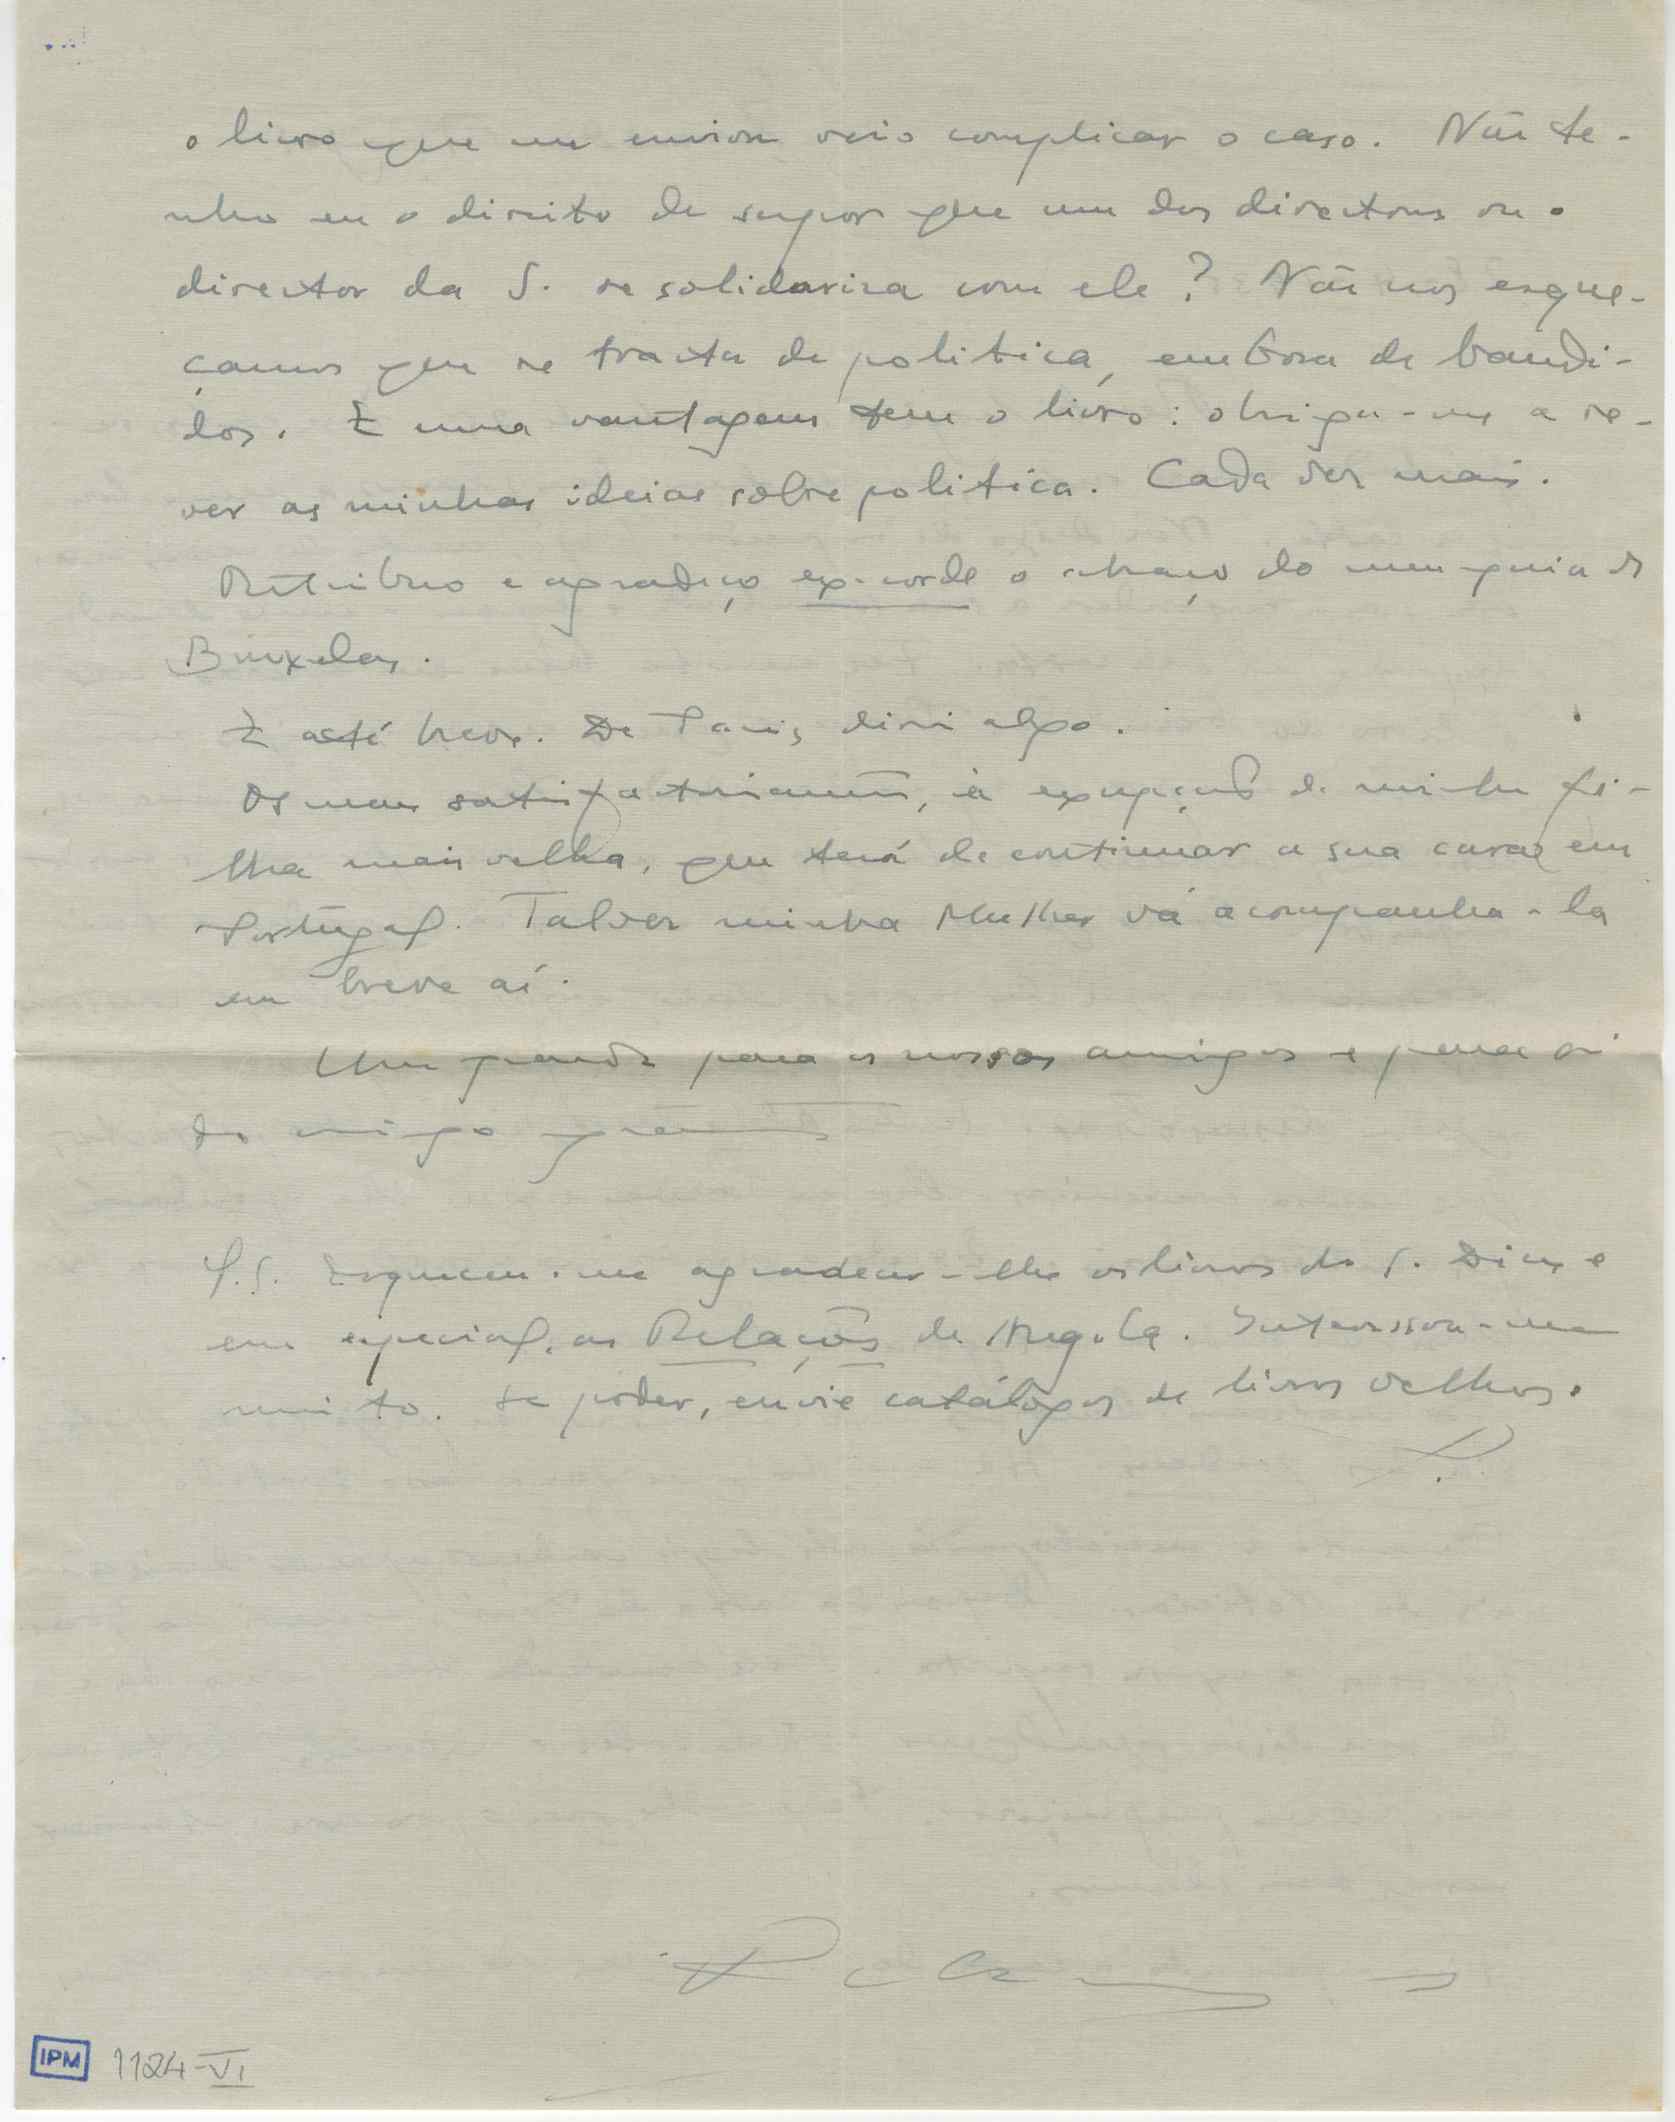 o livro que me enviou veio complicar o caso. Não te-
nho eu o direito de supor que um dos directores ou o
director da S. se solidariza com ele? Não nos esque-
çamos que se tracta de politica, embora de bandi-
dos. E uma vantagem tem o livro: obriga-me a re-
ver as minhas ideias sobre politica. Cada vez mais.
Retribuo e agradeço ex-corde o abraço do meu guia de
Bruxelas.
E até breve. De Paris direi algo.
Os meus satisfactoriamte, à excepção de minha fi-
lha mais velha, que terá de continuar a sua cura em
Portugal. Talvez minha Mulher vá acompanha-la
em breve aí.
Um grande para os nossos amigos e para si
do amigo grato
P.S. Esqueceu-me agradecer-lhe os livros da S. Dias e
em especial, as Relações de Angola. Interessou-me
muito. Se poder, envie catálogos de livros velhos.
P.
IPM 1124-VI